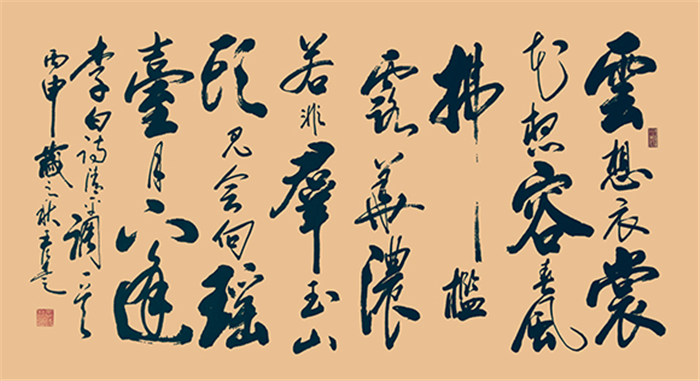 雲想衣裳
花想容春風
拂檻
露華濃
若非羣玉山
頭見會向瑶
臺月下逢
李白詩清平調一首
丙申歲之秋